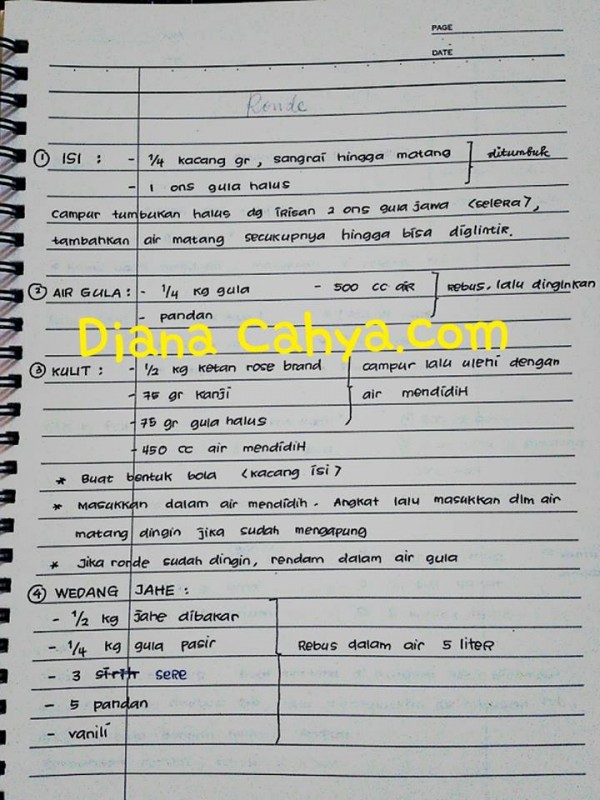 PAGE
DATE
Ronde
① ISI : - 1/4 kacang gr, sangrai hingga matang ditumbuk
- 1 ons gula halus
Campur tumbukan halus dg irisan 2 ons gula jawa (selera),
tambahkan air matang secukupnya hingga bisa diglintir.
② AIR GULA : - 1/4 kg gula - 500 cc air Rebus. lalu dinginkan
- pandan
Diana Cahya.Com
③ KULIT : - 1/2 kg ketan rose brand campur lalu uleni dengan
- 75 gr kanji air mendidih
- 75 gr gula halus
- 450 cc air mendidih
* Buat bentuk bola (kacang isi)
* Masukkan dalam air mendidih. Angkat lalu masukkan dlm air
matang dingin jika sudah mengapung
* Jika ronde sudah dingin, rendam dalam air gula
④ WEDANG JAHE :
- 1/2 kg jahe dibakar
- 1/4 kg gula pasir Rebus dalam air 5 liter
- 3 sere
- 5 pandan
- vanili